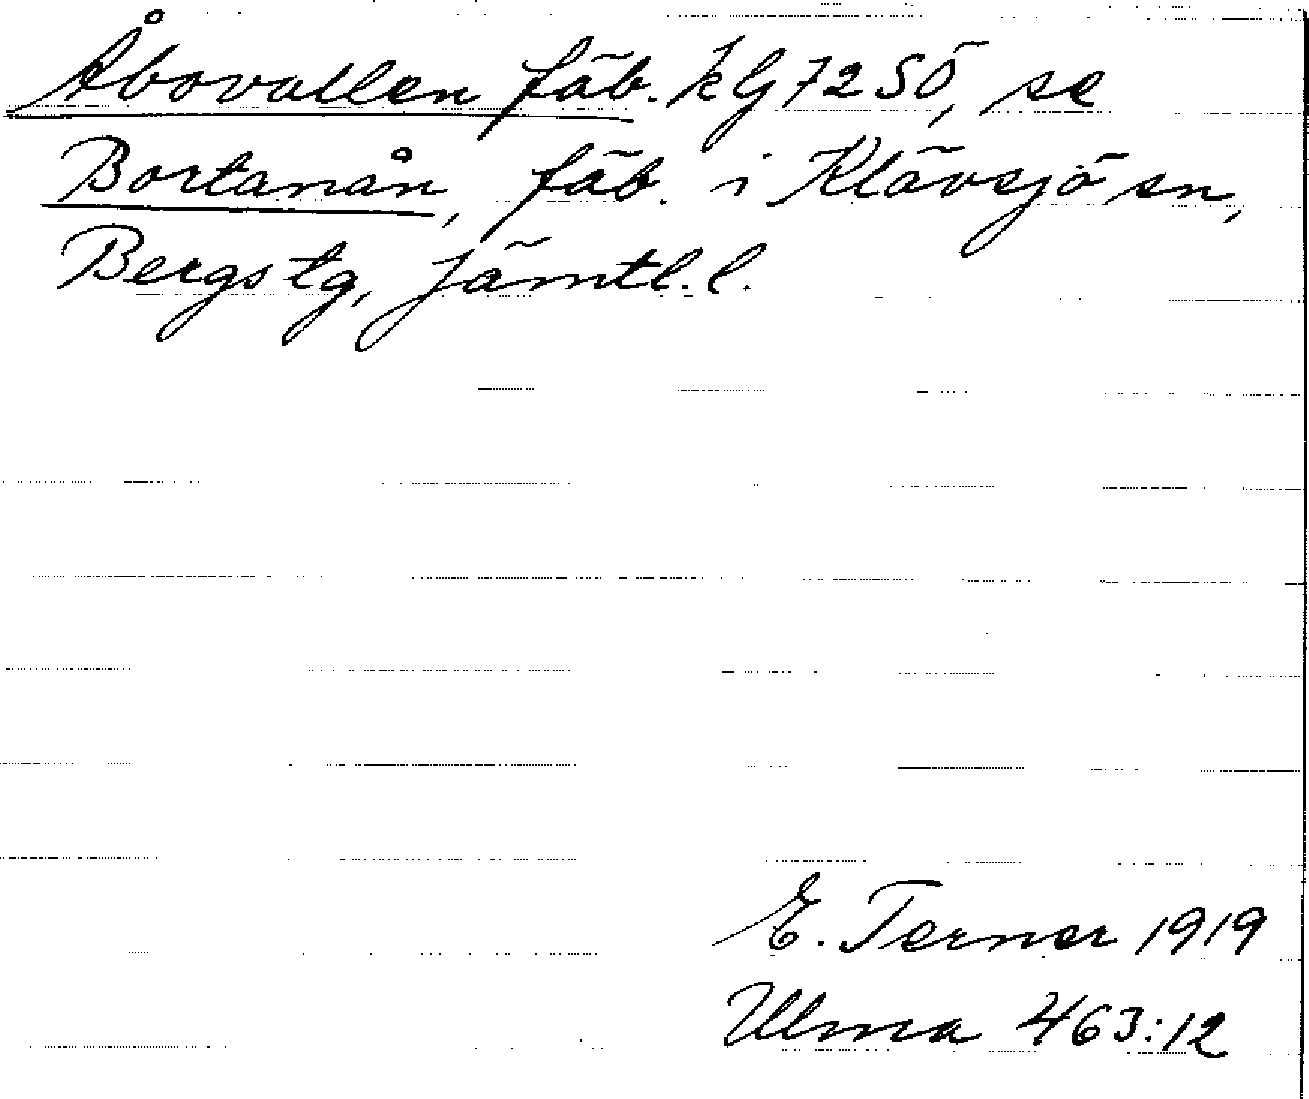 Åbovallen fäb. kG 7250, se
Bortanån, fäb. i Klövsjö sn,
Bergs tg, Jämtl. l.
E. Terner 1919
Ulma 463:12